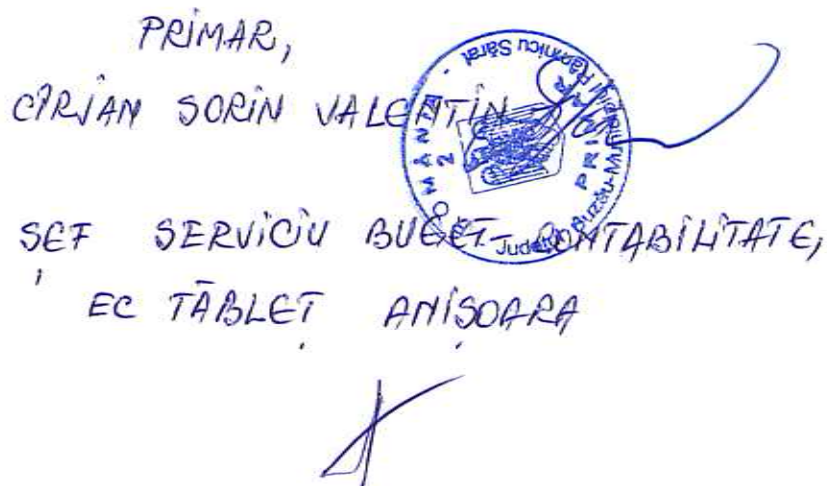 PRIMAR,
CÎRJAN SORIN VALENTIN
ROMÂNIA
2
Județul Buzău-Municipiul Râmnicu Sărat
PRIMAR
ȘEF SERVICIU BUGET-CONTABILITATE,
EC TĂBLEȚ ANIȘOARA